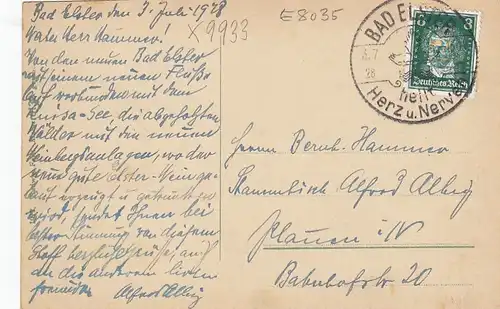 Bad Elster den 3. Juli 1928
E 8035
X 9933
Werter Herr Hammer!
Von dem neuen Bad Elster
mit seinem neuen Fluß-
lauf verbunden mit dem
see, die abgeholzten
Wälder mit den neuen
Weinbergsanlagen, wo der
gute Elster-Wein ge-
baut erzeugt u. getrunken
wird, sendet Ihnen bei
bester Stimmung von diesem
Stoff herzliche Grüße, auch
an die anderen lieben
Freunde
Alfred Albig
BAD EL
6.7
28
heilt
Herz u. Nerv
6 3
Deutsches Reich
Herrn Bernh. Hammer
Stammtisch Alfred Albig
Plauen i/V
Bahnhofstr 20